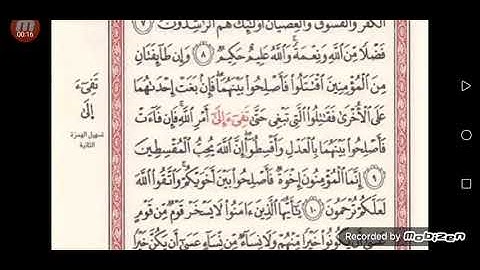 00:16
الكفر والفسوق والعصيان أولئك هم الراشدون ٧
فَضْلًا مِّنَ ٱللَّهِ وَنِعْمَةً وَٱللَّهُ عَلِيمٌ حَكِيمٌ ٨ وَإِن طَآئِفَتَانِ
مِنَ ٱلْمُؤْمِنِينَ ٱقْتَتَلُوا۟ فَأَصْلِحُوا۟ بَيْنَهُمَا فَإِنۢ بَغَتْ إِحْدَىٰهُمَا
عَلَى ٱلْأُخْرَىٰ فَقَٰتِلُوا۟ ٱلَّتِى تَبْغِى حَتَّىٰ تَفِىٓءَ إِلَىٰٓ أَمْرِ ٱللَّهِ فَإِن فَآءَتْ
فَأَصْلِحُوا۟ بَيْنَهُمَا بِٱلْعَدْلِ وَأَقْسِطُوٓا۟ إِنَّ ٱللَّهَ يُحِبُّ ٱلْمُقْسِطِينَ
٩ إِنَّمَا ٱلْمُؤْمِنُونَ إِخْوَةٌ فَأَصْلِحُوا۟ بَيْنَ أَخَوَيْكُمْ وَٱتَّقُوا۟ ٱللَّهَ
لَعَلَّكُمْ تُرْحَمُونَ ١٠ يَٰٓأَيُّهَا ٱلَّذِينَ ءَامَنُوا۟ لَا يَسْخَرْ قَوْمٌ مِّن قَوْمٍ
عَسَىٰٓ أَن يَكُونُوا۟ خَيْرًا مِّنْهُمْ وَلَا نِسَآءٌ مِّن نِّسَآءٍ عَسَىٰٓ أَن يَكُنَّ خَيْرًا
تَفِىٓءَ
إِلَىٰ
تسهيل الهمزة
الثانية
Recorded by Mobizen